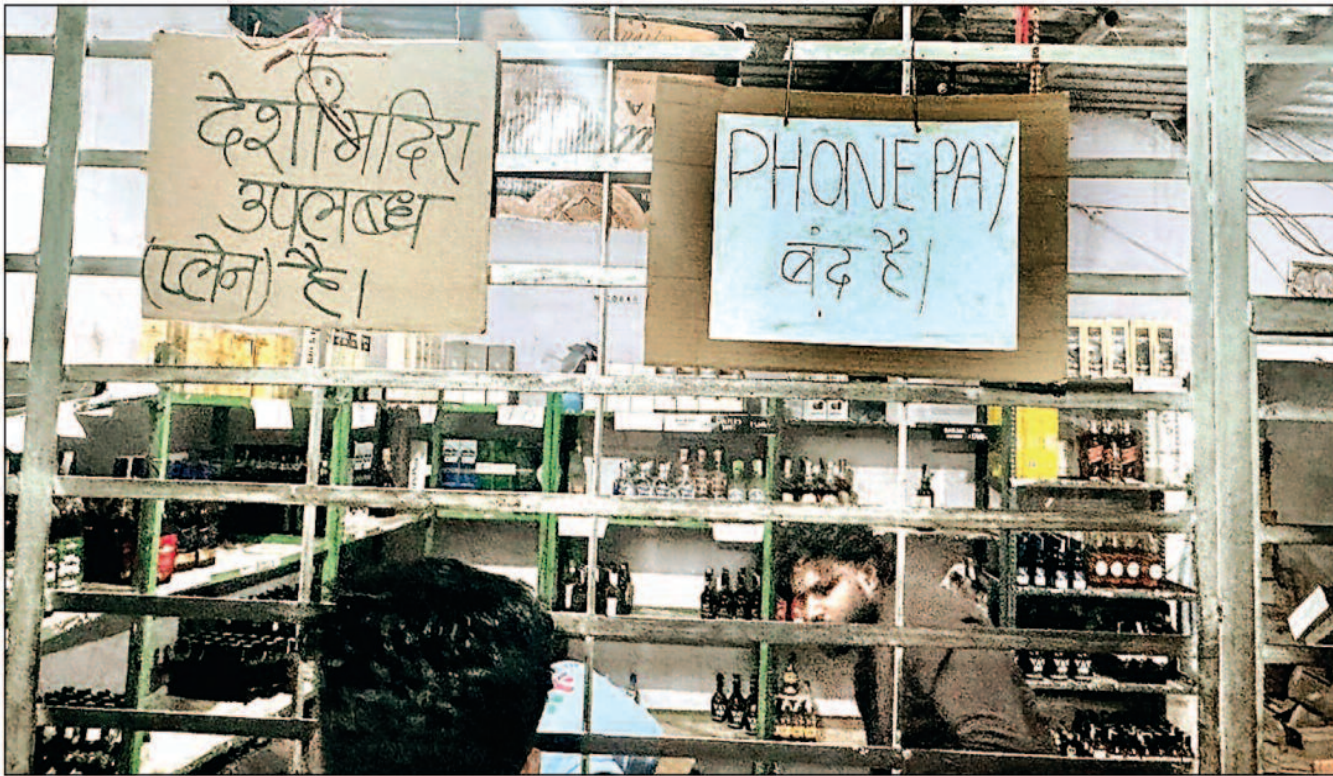 देशी मदिरा
उपलब्ध
(प्लेन) है।
PHONE PAY
बंद है।